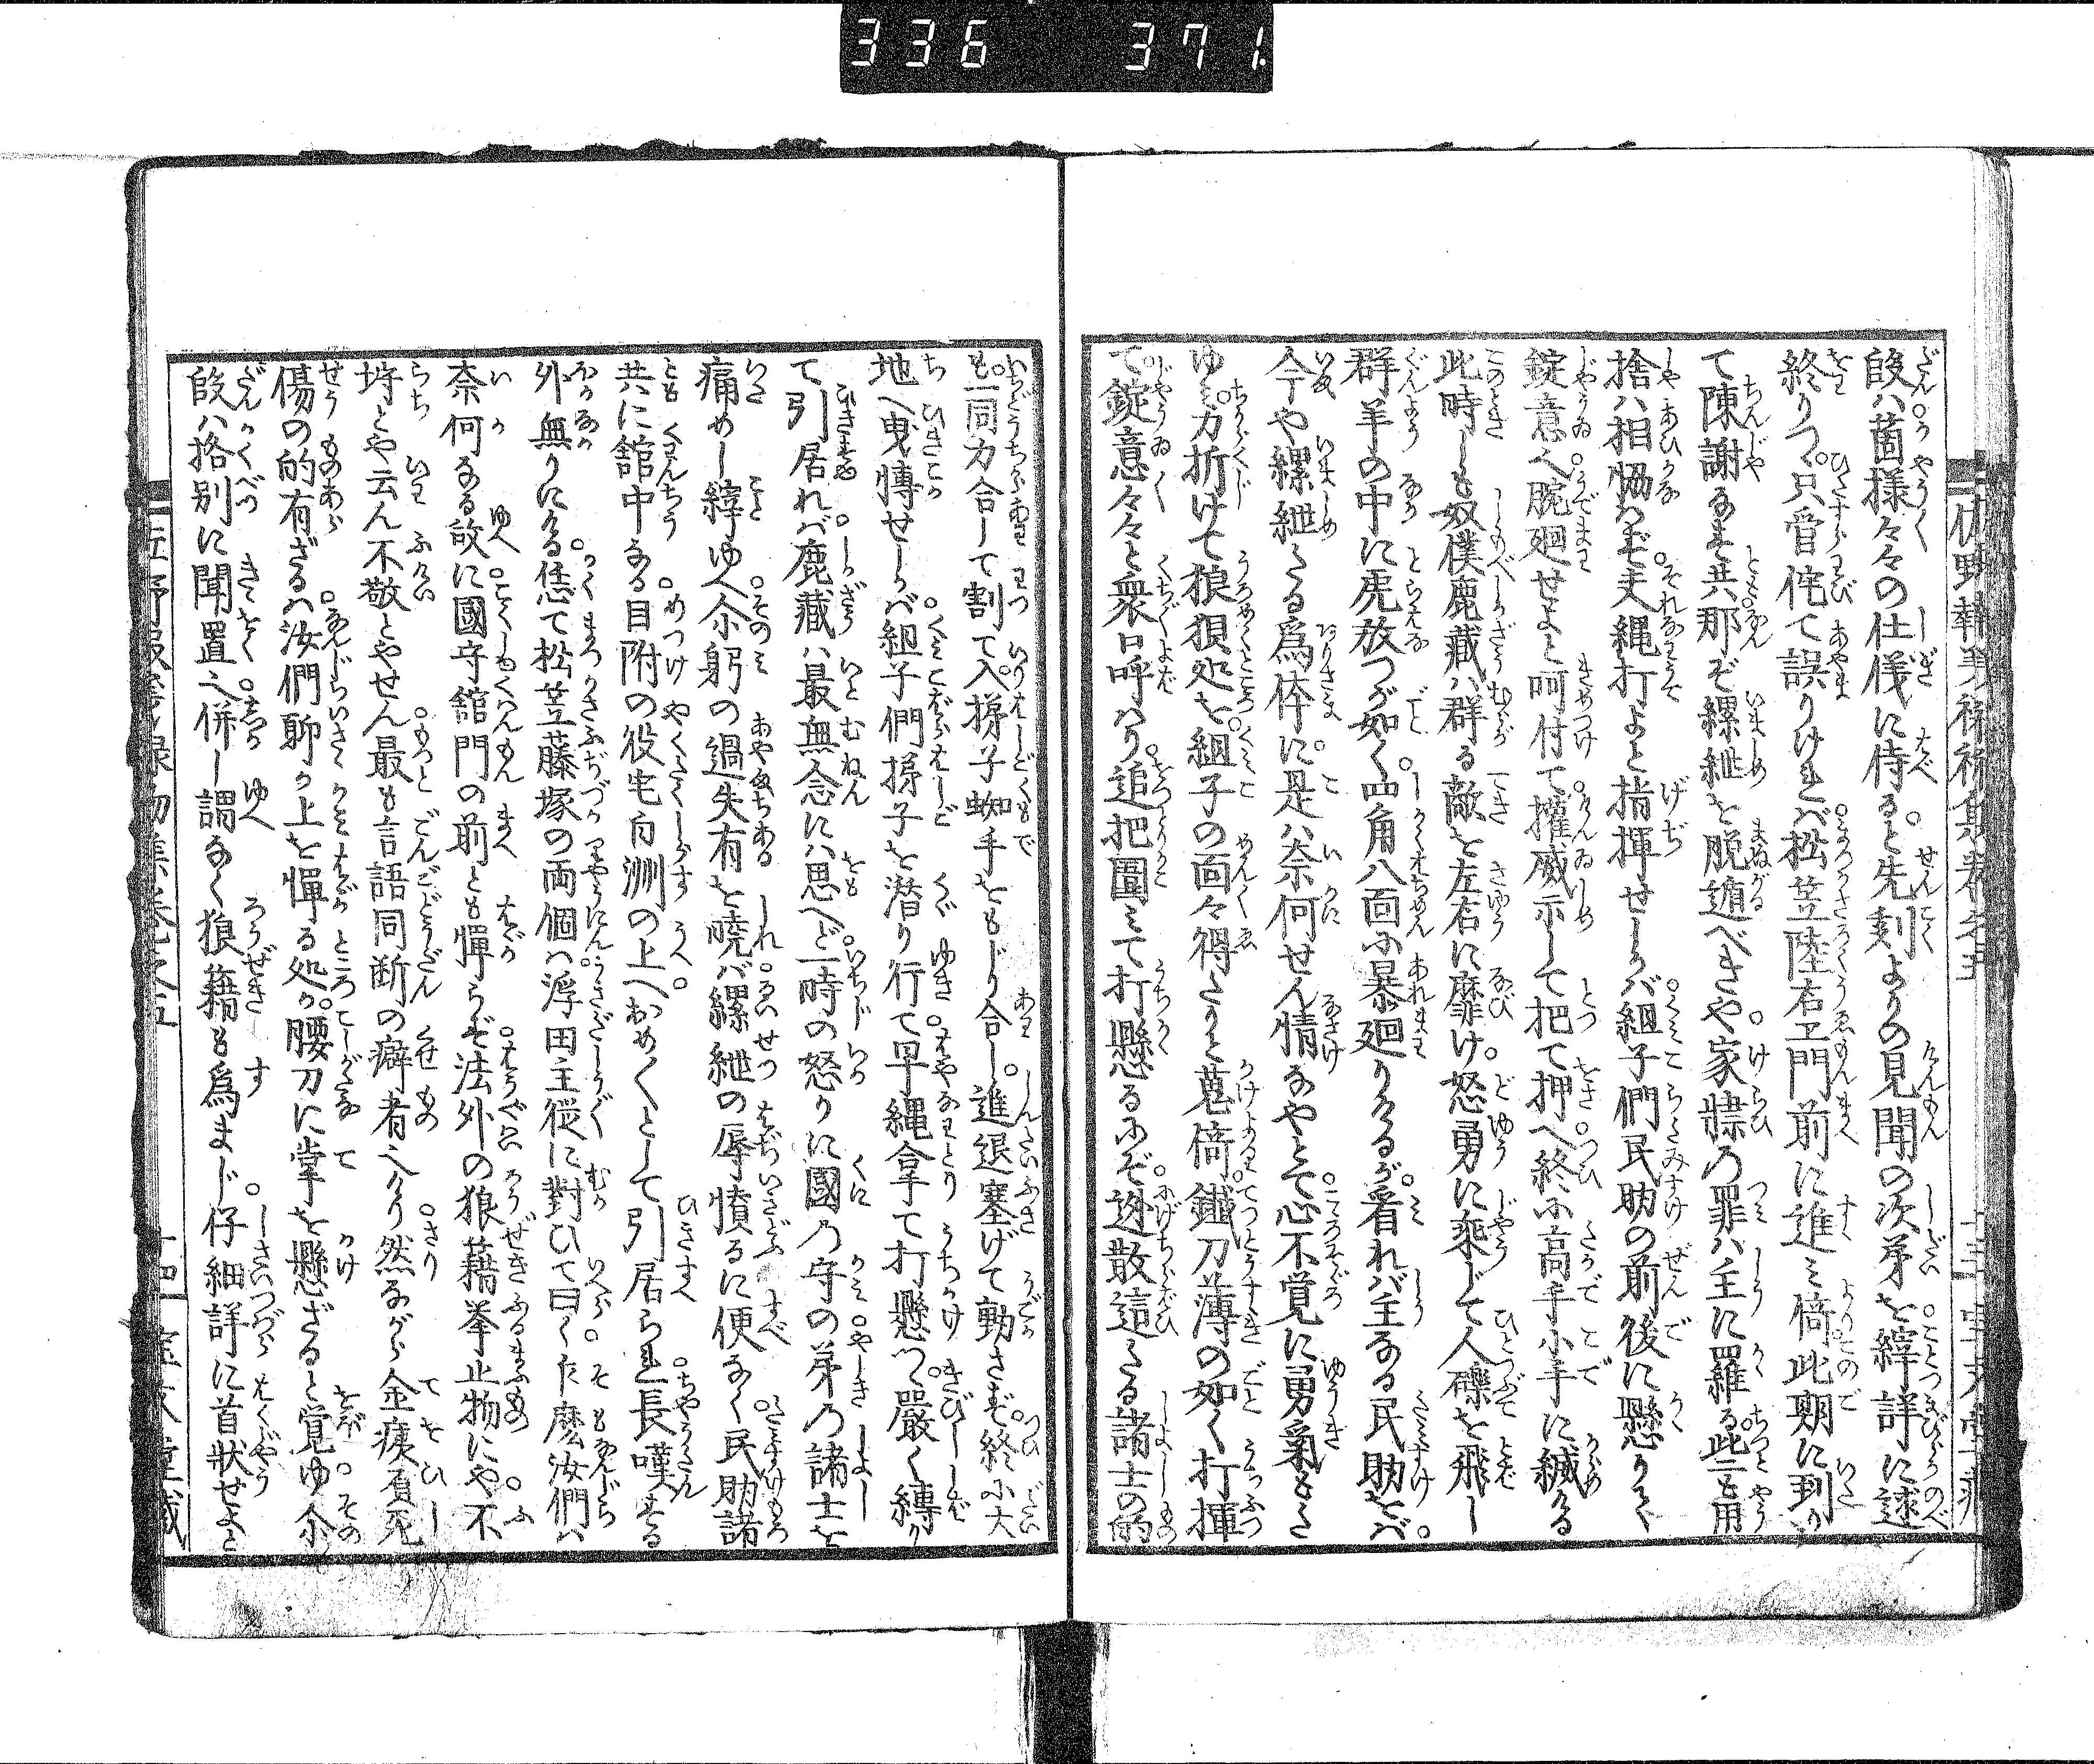 336 371
段ハ箇様々々の仕儀に侍ると先刻よりの見聞の次第を縡詳に述
終りつ只管侘て誤りけれバ松笠陸右エ門前に進ミ倚此期に到り
て陳謝なす共那ぞ縲紲を脱遁べきや家隷の罪ハ主に羅る些も用
捨ハ相協はず夫縄打よと指揮せしかバ組子們民助の前後に懸りて
錠意ぞ腕廻せよと呵付て擢威示して把て押へ終に高手小手に緘ける
此時しも奴僕鹿蔵ハ群る敵を左右に靡け怒勇に乗じて人礫を飛し
群羊の中に虎放つが如く四角八面に暴廻りけるが看れバ主なる民助をバ
今や縲紲たる為体に是ハ奈何せん情なやとて心不覚に勇気もた
ゆミ力折けて狼狽処を組子の面々得たりと蒐倚鉄刀薄の如く打揮
て錠意々々と衆口呼ハり追把囲ミて打懸るにぞ迯散這たる諸士の的
も一同力合して割て入搦子蜘手をもじり合し進退塞げて動さず終に大
地へ曳博せしかバ組子們搦子を潜り行て早縄拿て打懸つゝ厳く縛り
て引居れバ鹿蔵ハ最無念にハ思へど一時の怒りに國の守の弟の諸士を
痛めし縡ゆへ尒躬の過失有を暁バ縲紲の辱憤るに便なく民助諸
共に舘中なる目附の役宅白洲の上へおめ〳〵として引居られ長嘆する
外無りにける恁て松笠藤塚の両個ハ浮田主従に対ひて曰くた麼汝們ハ
奈何なる故に國守舘門の前とも憚らず法外の狼藉挙止物にや不
埒とや云ん不敬とやせん最も言語同断の癖者へけり然ながら金痍負死
傷の的有ざるハ汝們聊か上を憚る処か腰刀に掌を懸ざると覚ゆ尒
段ハ格別に聞置へ併し謂なく狼藉も為まじ仔細詳に首状せよと